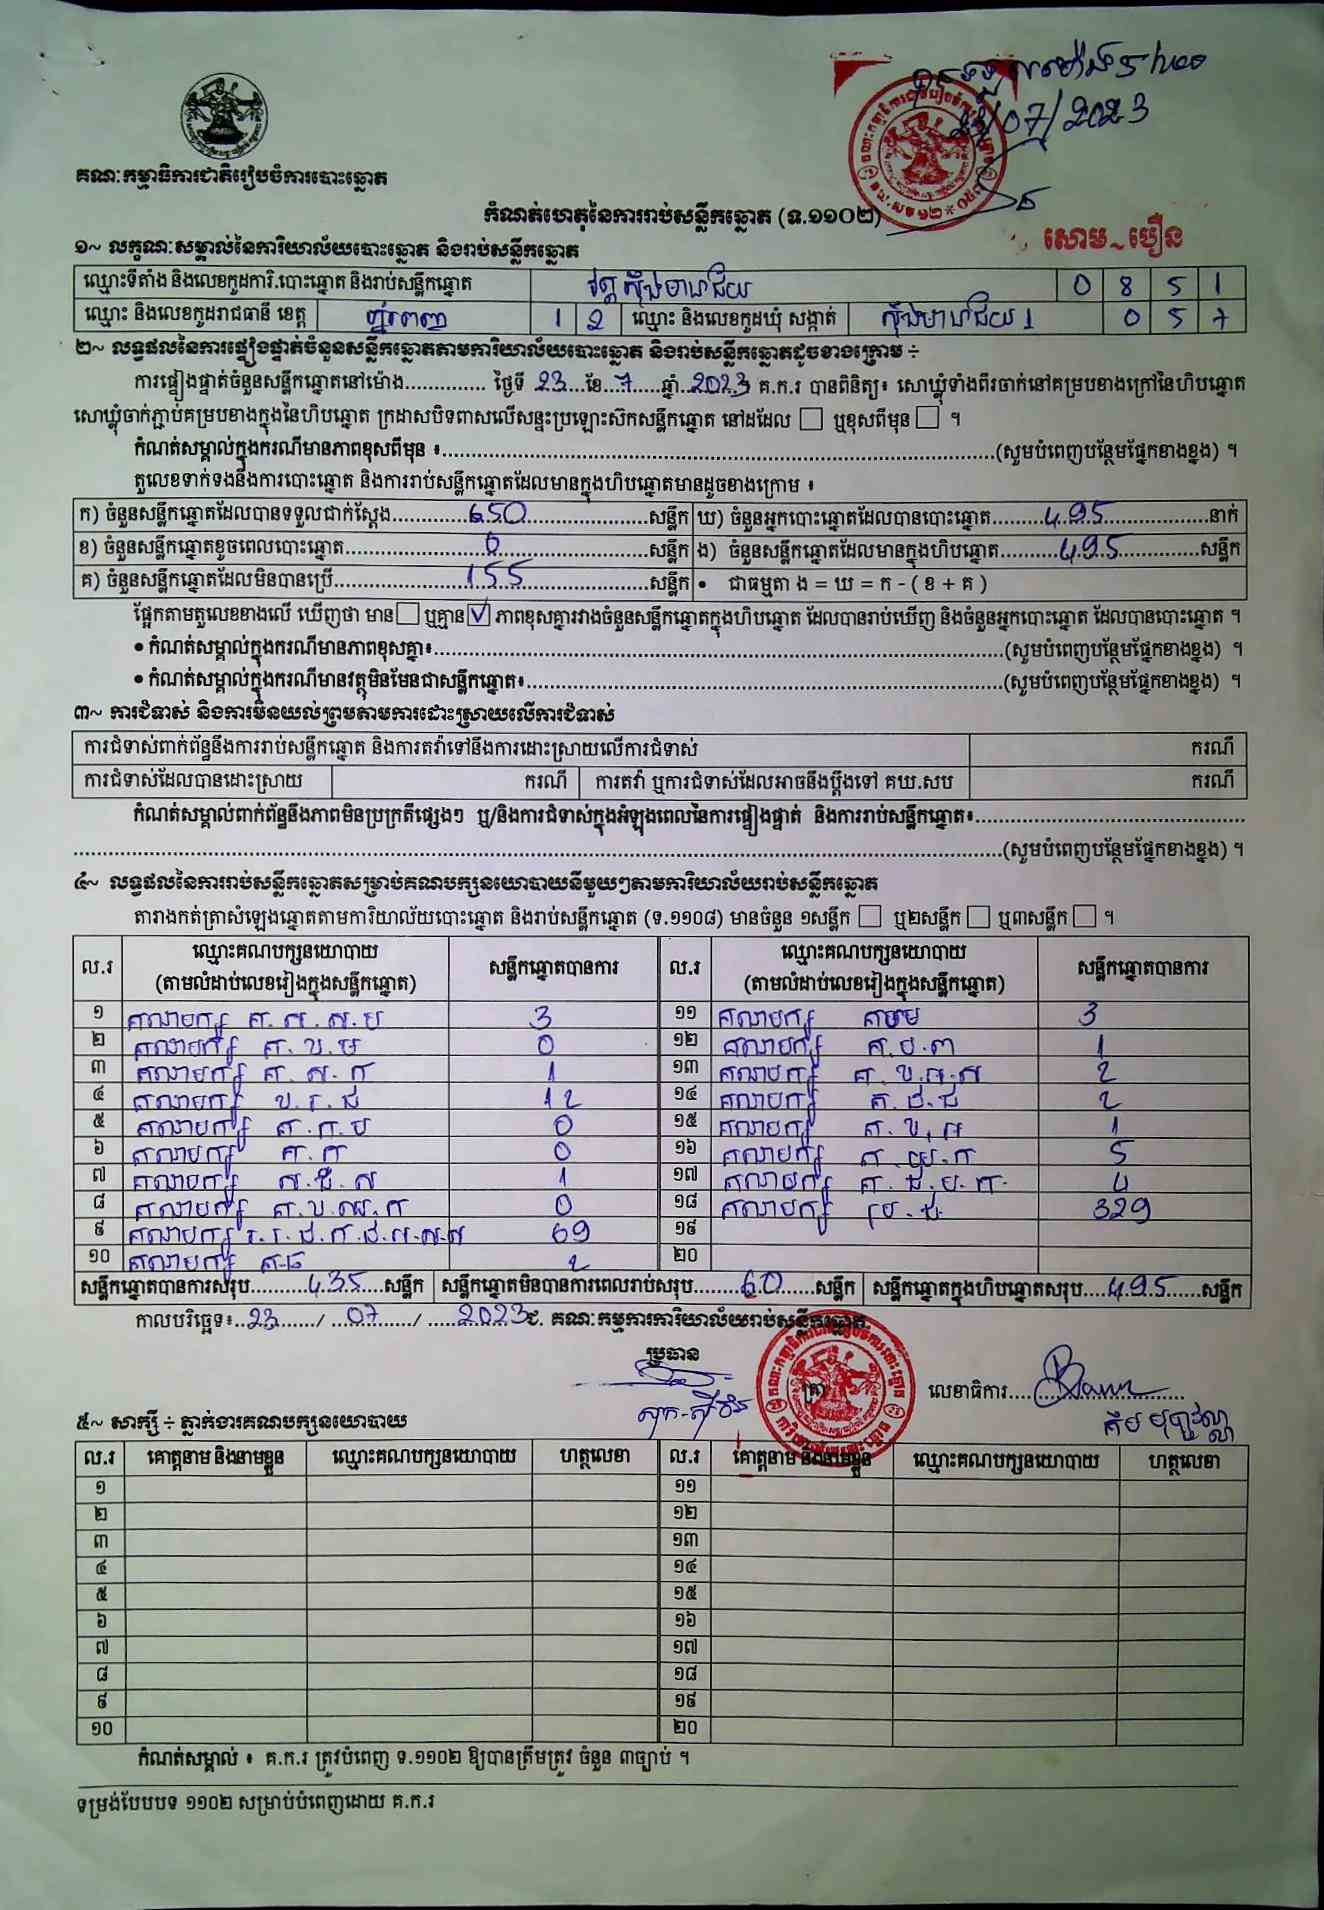 ២៣/07/2023
គណៈកម្មាធិការជាតិរៀបចំការបោះឆ្នោត
កំណត់ហេតុនៃការរាប់សន្លឹកឆ្នោត (ទ.១១០២)
សោម~បឿន
១~ លក្ខណៈសម្គាល់នៃការិយាល័យបោះឆ្នោត និងរាប់សន្លឹកឆ្នោត
ឈ្មោះទីតាំង និងលេខកូដការិ.បោះឆ្នោត និងរាប់សន្លឹកឆ្នោត វត្តស្ទឹងមានជ័យ 0 8 5 1
ឈ្មោះ និងលេខកូដរាជធានី ខេត្ត ភ្នំពេញ 1 2 ឈ្មោះ និងលេខកូដឃុំ សង្កាត់ ស្ទឹងមានជ័យ 1 0 5 7
២~ លទ្ធផលនៃការផ្ទៀងផ្ទាត់ចំនួនសន្លឹកឆ្នោតតាមការិយាល័យបោះឆ្នោត និងរាប់សន្លឹកឆ្នោតដូចខាងក្រោម ÷
ការផ្ទៀងផ្ទាត់ចំនួនសន្លឹកឆ្នោតនៅម៉ោង.............. ថ្ងៃទី 23 ...ខែ...7.....ឆ្នាំ..2023 គ.ក.រ បានពិនិត្យ៖ សោឃ្លុំទាំងពីរចាក់នៅគម្របខាងក្រៅនៃហិបឆ្នោត
សោឃ្លុំចាក់ភ្ជាប់គម្របខាងក្នុងនៃហិបឆ្នោត ក្រដាសបិទពាសលើសន្ទះប្រឡោះស៊កសន្លឹកឆ្នោត នៅដដែល ☐ ឬខុសពីមុន ☐ ។
កំណត់សម្គាល់ក្នុងករណីមានភាពខុសពីមុន ៖..............................(សូមបំពេញបន្ថែមផ្នែកខាងខ្នង) ។
តួលេខទាក់ទងនឹងការបោះឆ្នោត និងការរាប់សន្លឹកឆ្នោតដែលមានក្នុងហិបឆ្នោតមានដូចខាងក្រោម ៖
ក) ចំនួនសន្លឹកឆ្នោតដែលបានទទួលជាក់ស្តែង............650............សន្លឹក ឃ) ចំនួនអ្នកបោះឆ្នោតដែលបានបោះឆ្នោត.........495............នាក់
ខ) ចំនួនសន្លឹកឆ្នោតខូចពេលបោះឆ្នោត............0............សន្លឹក ង) ចំនួនសន្លឹកឆ្នោតដែលមានក្នុងហិបឆ្នោត..........495............សន្លឹក
គ) ចំនួនសន្លឹកឆ្នោតដែលមិនបានប្រើ............155............សន្លឹក • ជាធម្មតា ង = ឃ = ក - ( ខ + គ )
ផ្អែកតាមតួលេខខាងលើ ឃើញថា មាន ☐ ឬគ្មាន ☑ ភាពខុសគ្នារវាងចំនួនសន្លឹកឆ្នោតក្នុងហិបឆ្នោត ដែលបានរាប់ឃើញ និងចំនួនអ្នកបោះឆ្នោត ដែលបានបោះឆ្នោត ។
• កំណត់សម្គាល់ក្នុងករណីមានភាពខុសគ្នា៖..............................(សូមបំពេញបន្ថែមផ្នែកខាងខ្នង) ។
• កំណត់សម្គាល់ក្នុងករណីមានវត្ថុមិនមែនជាសន្លឹកឆ្នោត៖..............................(សូមបំពេញបន្ថែមផ្នែកខាងខ្នង) ។
៣~ ការជំទាស់ និងការមិនយល់ព្រមតាមការដោះស្រាយលើការជំទាស់
ការជំទាស់ពាក់ព័ន្ធនឹងការរាប់សន្លឹកឆ្នោត និងការតវ៉ាទៅនឹងការដោះស្រាយលើការជំទាស់ ករណី
ការជំទាស់ដែលបានដោះស្រាយ ករណី ការតវ៉ា ឬការជំទាស់ដែលអាចនឹងប្តឹងទៅ គឃ.សប ករណី
កំណត់សម្គាល់ពាក់ព័ន្ធនឹងភាពមិនប្រក្រតីផ្សេងៗ ឬ/និងការជំទាស់ក្នុងអំឡុងពេលនៃការផ្ទៀងផ្ទាត់ និងការរាប់សន្លឹកឆ្នោត៖..............................
..............................(សូមបំពេញបន្ថែមផ្នែកខាងខ្នង) ។
៤~ លទ្ធផលនៃការរាប់សន្លឹកឆ្នោតសម្រាប់គណបក្សនយោបាយនីមួយៗតាមការិយាល័យរាប់សន្លឹកឆ្នោត
តារាងកត់ត្រាសំឡេងឆ្នោតតាមការិយាល័យបោះឆ្នោត និងរាប់សន្លឹកឆ្នោត (ទ.១១០៨) មានចំនួន ១សន្លឹក ☐ ឬ២សន្លឹក ☐ ឬ៣សន្លឹក ☐ ។
ល.រ ឈ្មោះគណបក្សនយោបាយ (តាមលំដាប់លេខរៀងក្នុងសន្លឹកឆ្នោត) សន្លឹកឆ្នោតបានការ ល.រ ឈ្មោះគណបក្សនយោបាយ (តាមលំដាប់លេខរៀងក្នុងសន្លឹកឆ្នោត) សន្លឹកឆ្នោតបានការ
១ គណបក្ស 3 ១១ គណបក្ស 3
២ គណបក្ស 0 ១២ គណបក្ស 1
៣ គណបក្ស 1 ១៣ គណបក្ស 2
៤ គណបក្ស ខ.រ.ជ 12 ១៤ គណបក្ស 2
៥ គណបក្ស 0 ១៥ គណបក្ស 1
៦ គណបក្ស 0 ១៦ គណបក្ស 5
៧ គណបក្ស 1 ១៧ គណបក្ស 4
៨ គណបក្ស 0 ១៨ គណបក្ស ប្រ.ជ 329
៩ គណបក្ស 69 ១៩
១០ គណបក្ស 2 ២០
សន្លឹកឆ្នោតបានការសរុប.........435....សន្លឹក សន្លឹកឆ្នោតមិនបានការពេលរាប់សរុប........60......សន្លឹក សន្លឹកឆ្នោតក្នុងហិបឆ្នោតសរុប....495......សន្លឹក
កាលបរិច្ឆេទ៖..23......./ ...07....../ .....2023 ជ. គណៈកម្មការការិយាល័យរាប់សន្លឹកឆ្នោត
ប្រធាន
ត្រា
លេខាធិការ..............................
៥~ សាក្សី ÷ ភ្នាក់ងារគណបក្សនយោបាយ
ល.រ គោត្តនាម និងនាមខ្លួន ឈ្មោះគណបក្សនយោបាយ ហត្ថលេខា ល.រ គោត្តនាម និងនាមខ្លួន ឈ្មោះគណបក្សនយោបាយ ហត្ថលេខា
១ ១១
២ ១២
៣ ១៣
៤ ១៤
៥ ១៥
៦ ១៦
៧ ១៧
៨ ១៨
៩ ១៩
១០ ២០
កំណត់សម្គាល់ ៖ គ.ក.រ ត្រូវបំពេញ ទ.១១០២ ឱ្យបានត្រឹមត្រូវ ចំនួន ៣ច្បាប់ ។
ទម្រង់បែបបទ ១១០២ សម្រាប់បំពេញដោយ គ.ក.រ